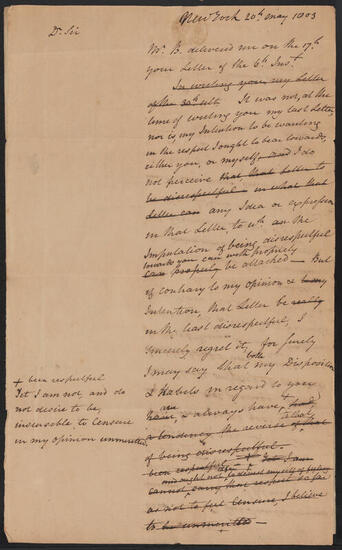 New York 20th May 1803
Dr Sir
Mr. B. delivered me on the 17th
your Letter of the 6th Inst
In writing you my Letter
of the 30th ulto It was not, at the
time of writing you my last Letter,
nor is my Intention to be wanting
in the respect I ought to bear towards
either you, or myself and I do
not perceive that that Letter to
be disrespectful in what that
Letter can any Idea or expression
in that Letter to wh an the
Imputation of being disrespectful
towards you can with propriety
can properly be attached – But
if contrary to my opinion &
Intention, that Letter be really
in the least disrespectful, I
sincerely regret it, for surely
I may say that both my Disposition
& Habits in regard to you
are
have, & always have
a tendency the reverse of that
of being disrespectful.
been respectful + Yet I am
cannot carry that respect so far
as not to feel Censure, I believe
to be unmerited –
+ been respectful
Yet I am not, and do
not desire to be,
insensible to Censure
in my opinion unmerited